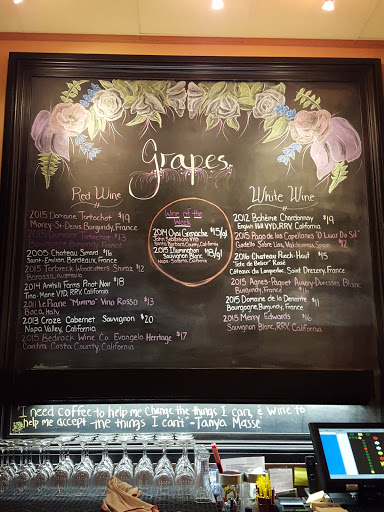 Grapes
Red Wine
2015 Domaine Tortochot $19
Morey-St-Denis, Burgundy, France
2015 Domaine Tortochot $13
Burgundy, France
2005 Chateau Simard $16
Saint-Emilion, Bordeaux, France
2015 Torbreck Woodcutters Shiraz $12
Barossa, Australia
2014 Anthill Farms Pinot Noir $18
Tina-Marie VYD, RRV, California
Vino Rosso $13
Italy
2013 Croze Cabernet Sauvignon $20
Napa Valley, California
2015 Bedrock Wine Co. Evangelo Heritage $17
Contra Costa County, California
Wine of the
Week
2014 Ojai Grenache $15/gl
John Sebastiano VYD
Santa Barbara County, California
2015 Illumination $18/gl
Sauvignon Blanc
Napa-Sonoma, California
White Wine
2012 Bohème Chardonnay $19
English Hill VYD, RRV, California
2015 Pazo de las Capillanes "O Luar Do Sil"
Godello Sobre Lias, Valdeorras, Spain $12
2016 Chateau Puech-Haut $15
Tete de Belier" Rosé
Côteaux du Languedoc, Saint Drezery, France
2015 Agnes-Paquet Auxey-Duresses Blanc
Burgundy, France $16
2015 Domaine de la Denante $11
Burgundy, France
2015 Merry Edwards $16
Sauvignon Blanc, RRV, California
"I need coffee to help me change the things I can, & wine to
help me accept the things I can't" -Tanya Masse